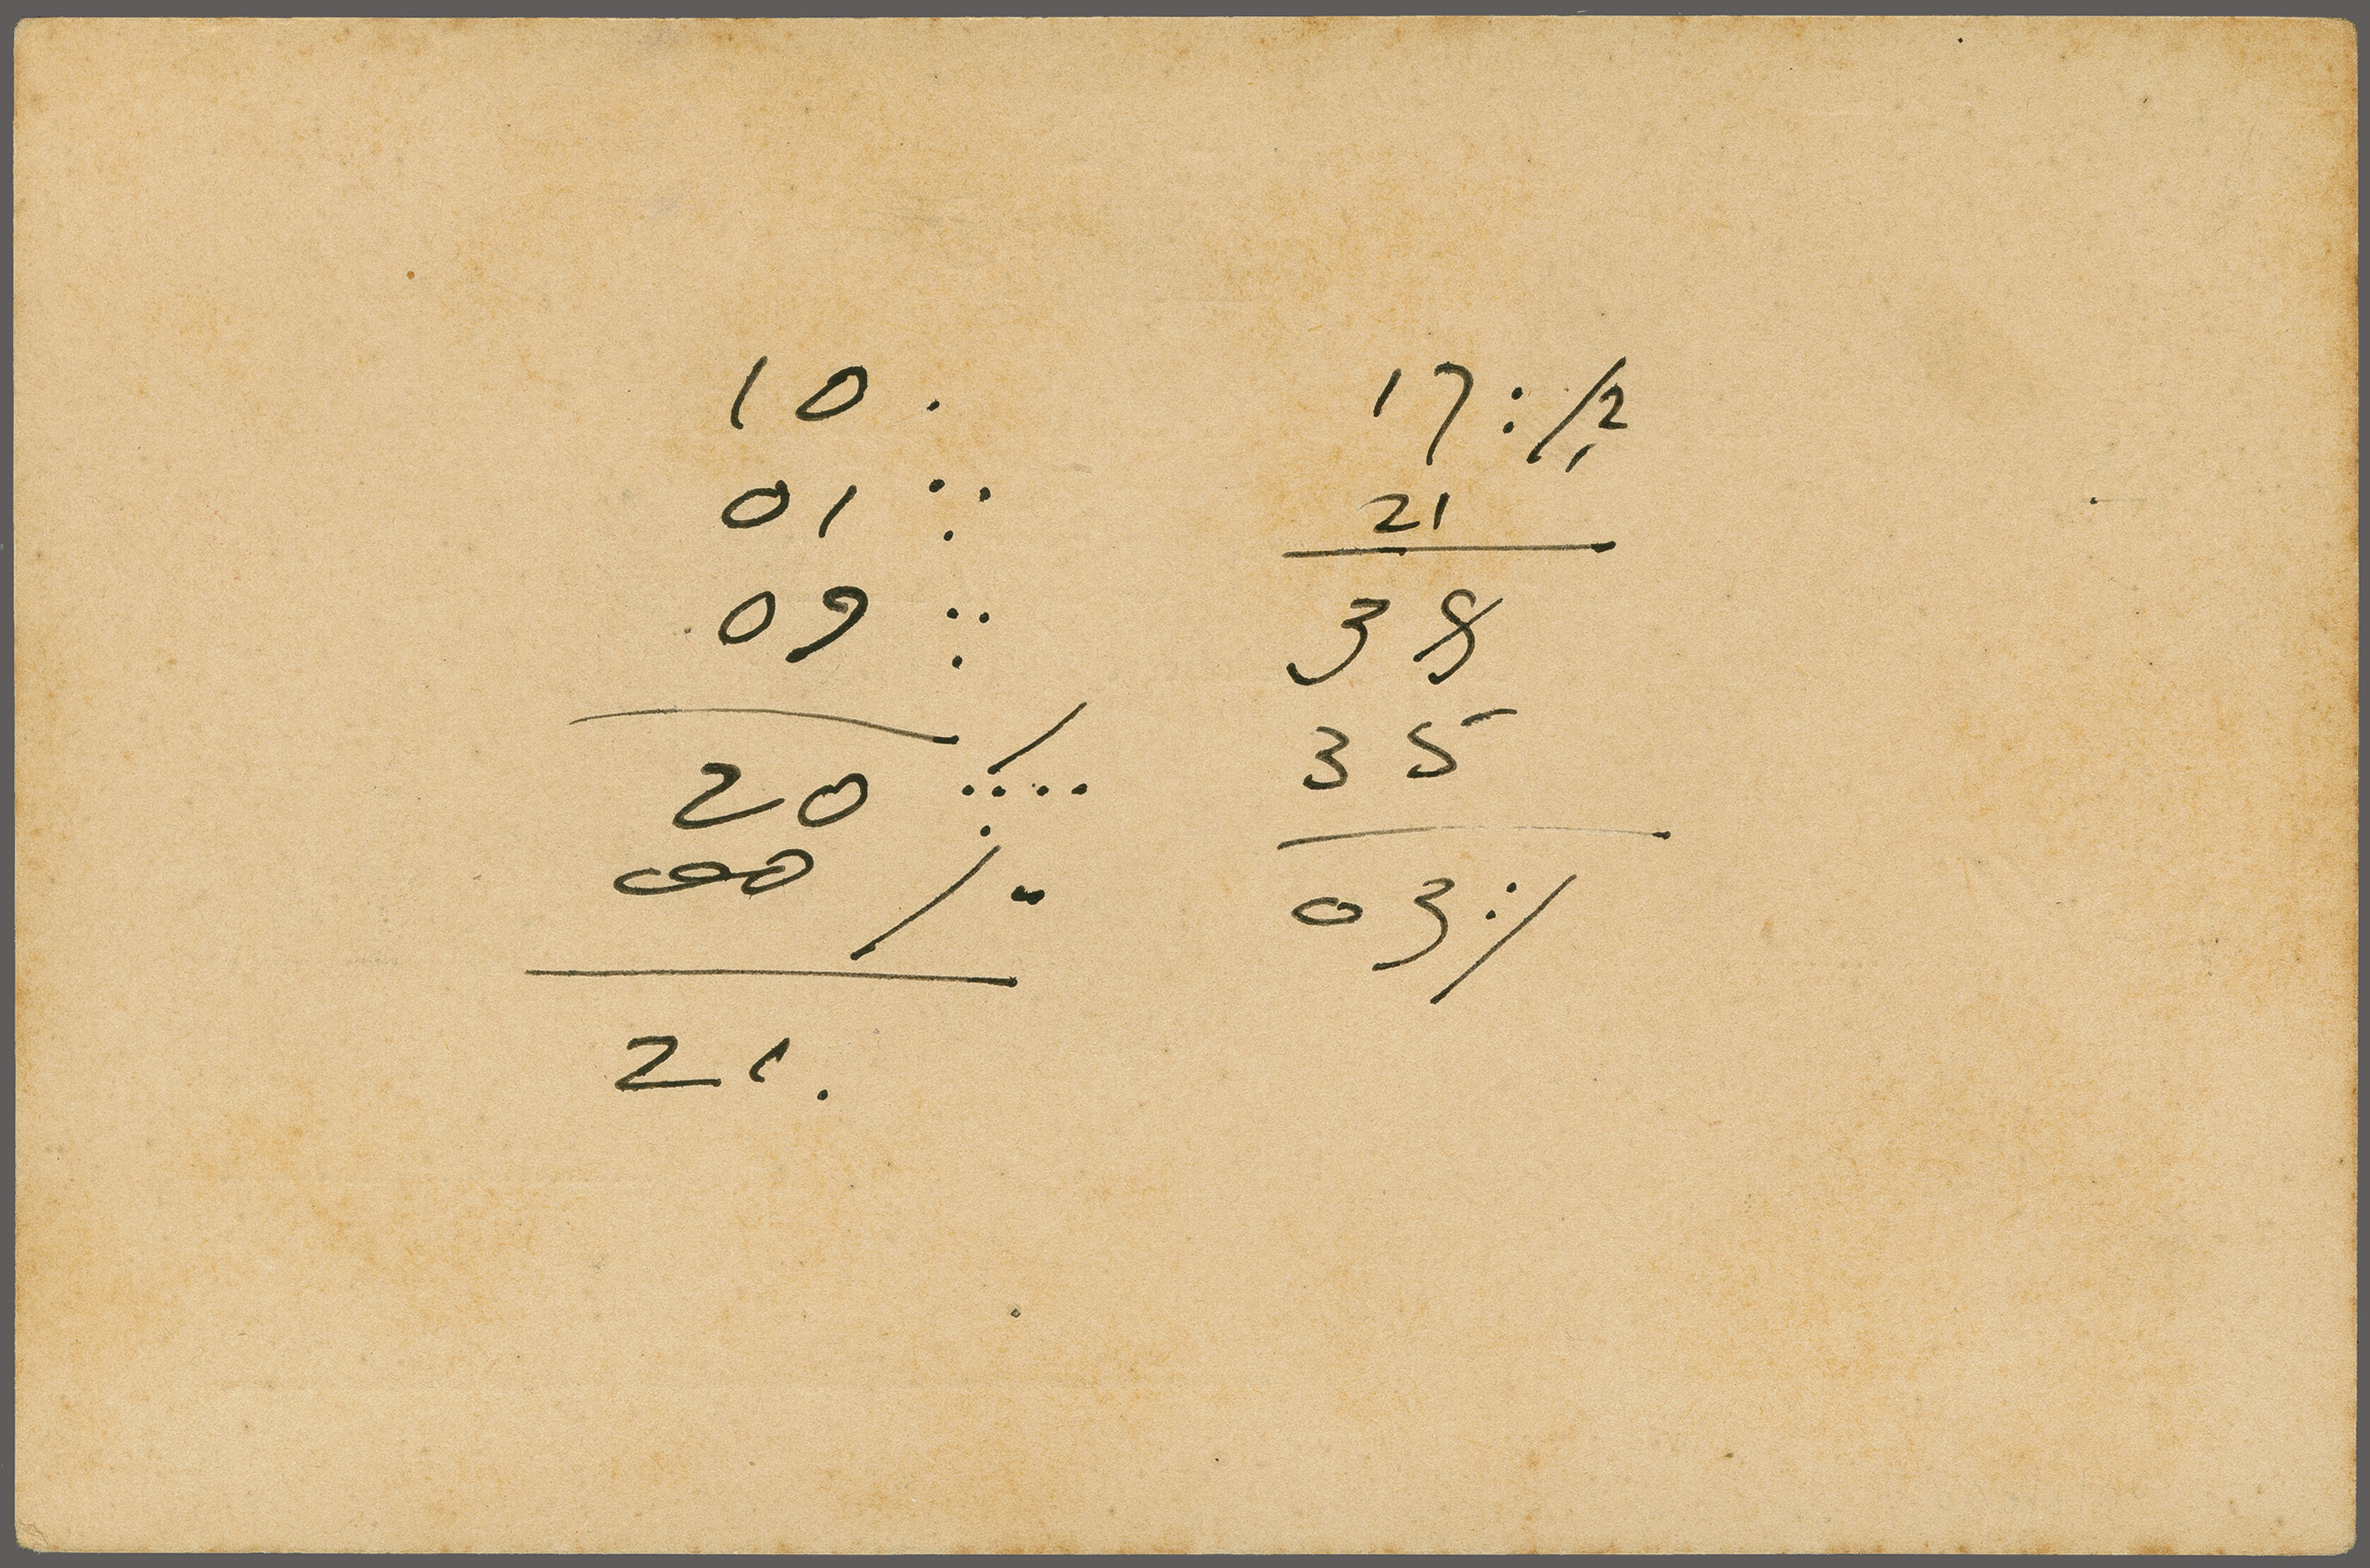 10 .
01 :·
09 :·
20 :· ··/
00 /-
21.
17 :/2
21
38
35
03 :/